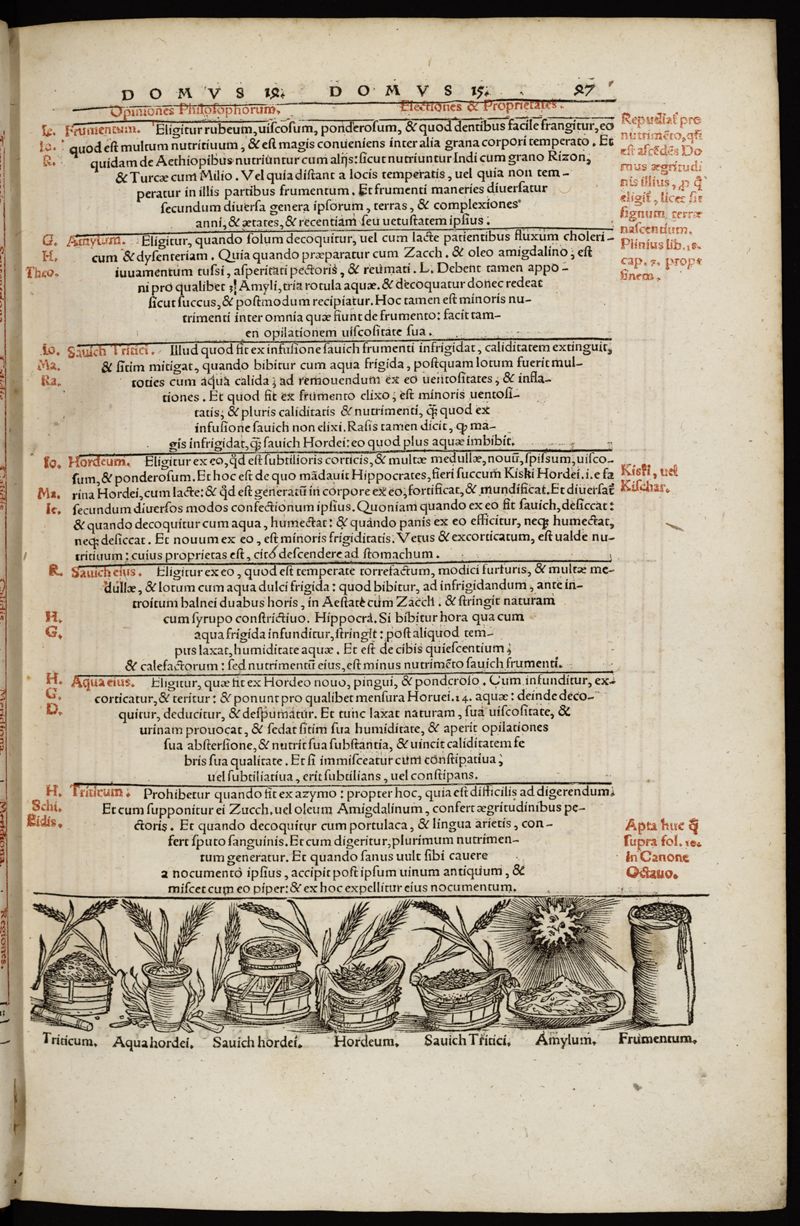 DOMVS 14. DOMVS 15. 27
Opiniones Philosophorum. Electiones & Proprietates.
Ie. Frumentum. Eligitur rubeum, uiſcoſum, ponderoſum, & quod dentibus facile frangitur, eo
Io. quod eſt multum nutritiuum, & eſt magis conueniens inter alia grana corpori temperato. Et
R. quidam de Aethiopibus nutriuntur cum alijs: ſicut nutriuntur Indi cum grano Rizon,
& Turcæ cum Milio. Vel quia diſtant a locis temperatis, uel quia non tem-
peratur in illis partibus frumentum. Et frumenti maneries diuerſatur
ſecundum diuerſa genera ipſorum, terras, & complexiones
anni, & ætates, & recentiam ſeu uetuſtatem ipſius.
Repudiat͛ pre
nutrimēto, qſi
eſt aſcēdēs Do
mus ægritudi
nis illius, ꝓ q̄
eligit͛, licet ſit
ſignum terræ
naſcentium.
Plinius lib. 18.
cap. 7. prope
finem.
G. Amylum. Eligitur, quando ſolum decoquitur, uel cum lacte patientibus fluxum choleri-
H. cum & dyſenteriam. Quia quando præparatur cum Zacch. & oleo amigdalino, eſt
Theo. iuuamentum tuſsi, aſperitati pectoris, & reumati. L. Debent tamen appo-
ni pro qualibet ʒ! Amyli, tria rotula aquæ. & decoquatur donec redeat
ſicut ſuccus, & poſtmodum recipiatur. Hoc tamen eſt minoris nu-
trimenti inter omnia quæ fiunt de frumento: facit tam-
en opilationem uiſcoſitate ſua.
Io. Sauich Tritici. Illud quod fit ex infuſione ſauich frumenti infrigidat, caliditatem extinguit,
Ma. & ſitim mitigat, quando bibitur cum aqua frigida, poſtquam lotum fuerit mul-
Ra. toties cum aqua calida, ad remouendum ex eo uentoſitates, & infla-
tiones. Et quod fit ex frumento elixo, eſt minoris uentoſi-
tatis, & pluris caliditatis & nutrimenti, q̄ꝫ quod ex
infuſione ſauich non elixi. Raſis tamen dicit, ꝙ ma-
gis infrigidat, q̄ꝫ ſauich Hordei: eo quod plus aquæ imbibit.
Io. Hordeum. Eligitur ex eo, qd̄ eſt ſubtilioris corticis, & multæ medullæ, nouū, ſpiſsum, uiſco-
ſum, & ponderoſum. Et hoc eſt de quo mādauit Hippocrates, fieri ſuccum Kiski Hordei. i. e fa
Ma. rina Hordei, cum lacte: & qd̄ eſt generatū in corpore ex eo, fortificat, & mundificat. Et diuerſat͛
Ie. ſecundum diuerſos modos confectionum ipſius. Quoniam quando ex eo fit ſauich, deſiccat:
& quando decoquitur cum aqua, humectat: & quando panis ex eo efficitur, neqꝫ humectat,
neqꝫ deſiccat. Et nouum ex eo, eſt minoris frigiditatis. Vetus & excorticatum, eſt ualde nu-
tritiuum: cuius proprietas eſt, cito deſcendere ad ſtomachum.
Kiſti, uel
Kiſchar.
R. Sauich eius. Eligitur ex eo, quod eſt temperate torrefactum, modici furfuris, & multæ me-
dullæ, & lotum cum aqua dulci frigida: quod bibitur, ad infrigidandum, ante in-
troitum balnei duabus horis, in Aeſtate cum Zacch. & ſtringit naturam
H. cum ſyrupo conſtrictiuo. Hippocra. Si bibitur hora qua cum
G. aqua frigida infunditur, ſtringit: poſt aliquod tem-
pus laxat, humiditate aquæ. Et eſt de cibis quieſcentium,
& calefactorum: ſed nutrimentū eius, eſt minus nutrimēto ſauich frumenti.
H. Aqua eius. Eligitur, quæ fit ex Hordeo nouo, pingui, & ponderoſo. Cum infunditur, ex-
G. corticatur, & teritur: & ponunt pro qualibet menſura Horuei. 14. aquæ: deinde deco-
D. quitur, deducitur, & deſpumatur. Et tunc laxat naturam, ſua uiſcoſitate, &
urinam prouocat, & ſedat ſitim ſua humiditate, & aperit opilationes
ſua abſterſione, & nutrit ſua ſubſtantia, & uincit caliditatem fe
bris ſua qualitate. Et ſi immiſceatur cum conſtipatiua,
uel ſubtiliatiua, erit ſubtilians, uel conſtipans.
H. Triticum. Prohibetur quando fit ex azymo: propter hoc, quia eſt difficilis ad digerendum.
Schi. Et cum ſupponitur ei Zucch. uel oleum Amigdalinum, confert ægritudinibus pe-
Eidis. ctoris. Et quando decoquitur cum portulaca, & lingua arietis, con-
fert ſputo ſanguinis. Et cum digeritur, plurimum nutrimen-
tum generatur. Et quando ſanus uult ſibi cauere
a nocumento ipſius, accipit poſt ipſum uinum antiquum, &
miſcet cum eo piper: & ex hoc expellitur eius nocumentum.
Apta huc q̄
ſupra fol. 10.
in Canone
Octauo.
Triticum. Aqua hordei. Sauich hordei. Hordeum. Sauich Tritici. Amylum. Frumentum.